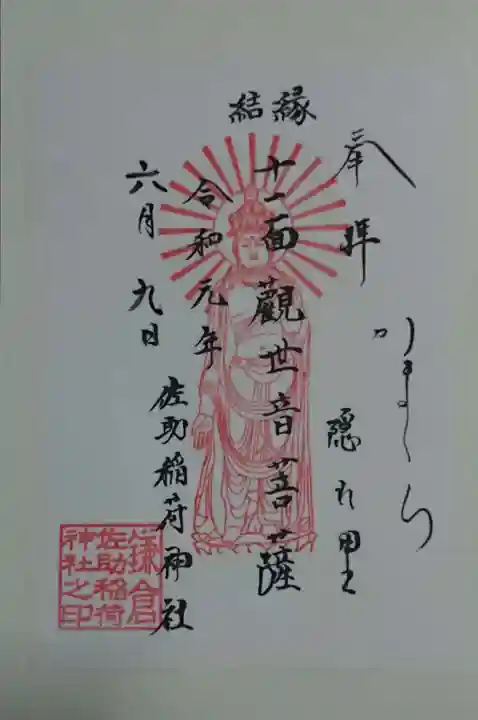 縁結
奉拝
かまくら
隠れ里
十一面観世音菩薩
令和元年
六月九日
佐助稲荷神社
鎌倉
佐助稲荷
神社之印